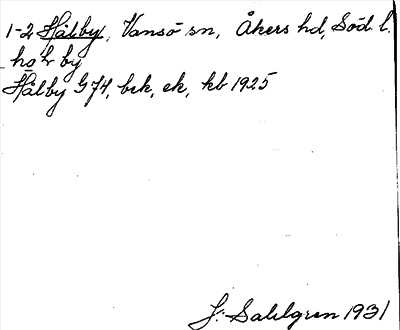 1-2 Hålby, Vansö sn, Åkers hd, Söd. l.
hg o. by
Hålby G74, bek, ek, kb 1925
J. Sahlgren 1931